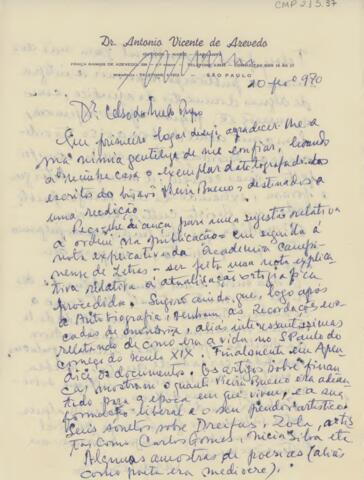 CMP 2.1.5.37
Dr. Antonio Vicente de Azevedo
PRAÇA RAMOS DE AZEVEDO, 209
SÃO PAULO
20 fevº 970
Dr. Celso da
Em primeiro logar desejo agradecer-lhe a
sua nimia gentileza de me confiar, levando
a minha casa o exemplar datilografado dos
escritos do bisavô Vieira Bueno, destinados a
uma reedição.
Recolhe dianca para uma sugestão relativa
a ordem na publicação: em seguida á
nota explicativa da Academia Campi-
nense de Letras — ser feita uma nota explica-
tiva relativa á atualização ortografica
procedida. Sugiro ainda que, logo após
a Autobiografia, venham as Recordações evo-
cadas de memoria, alias interessantissimas
relatando de como era a vida no S Paulo do
começo do seculo XIX. Finalmente em Apen-
dice os documentos. Os artigos sobre finan-
ças, mostram o quanto Vieira Bueno era adean-
tado para a época em que viveu, e a sua
formação liberal e o seu pendor artistico
Seus sonetos sobre Dreifus, Zola, artis-
tas como Carlos Gomes, Nicia Silva etc
Algumas amostras de poesias (alias
como poeta era mediocre).